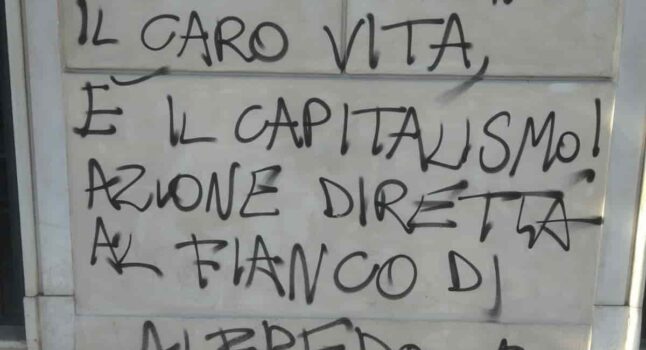 IL CARO VITA,
È IL CAPITALISMO!
AZIONE DIRETTA
AL FIANCO DI
ALFREDO